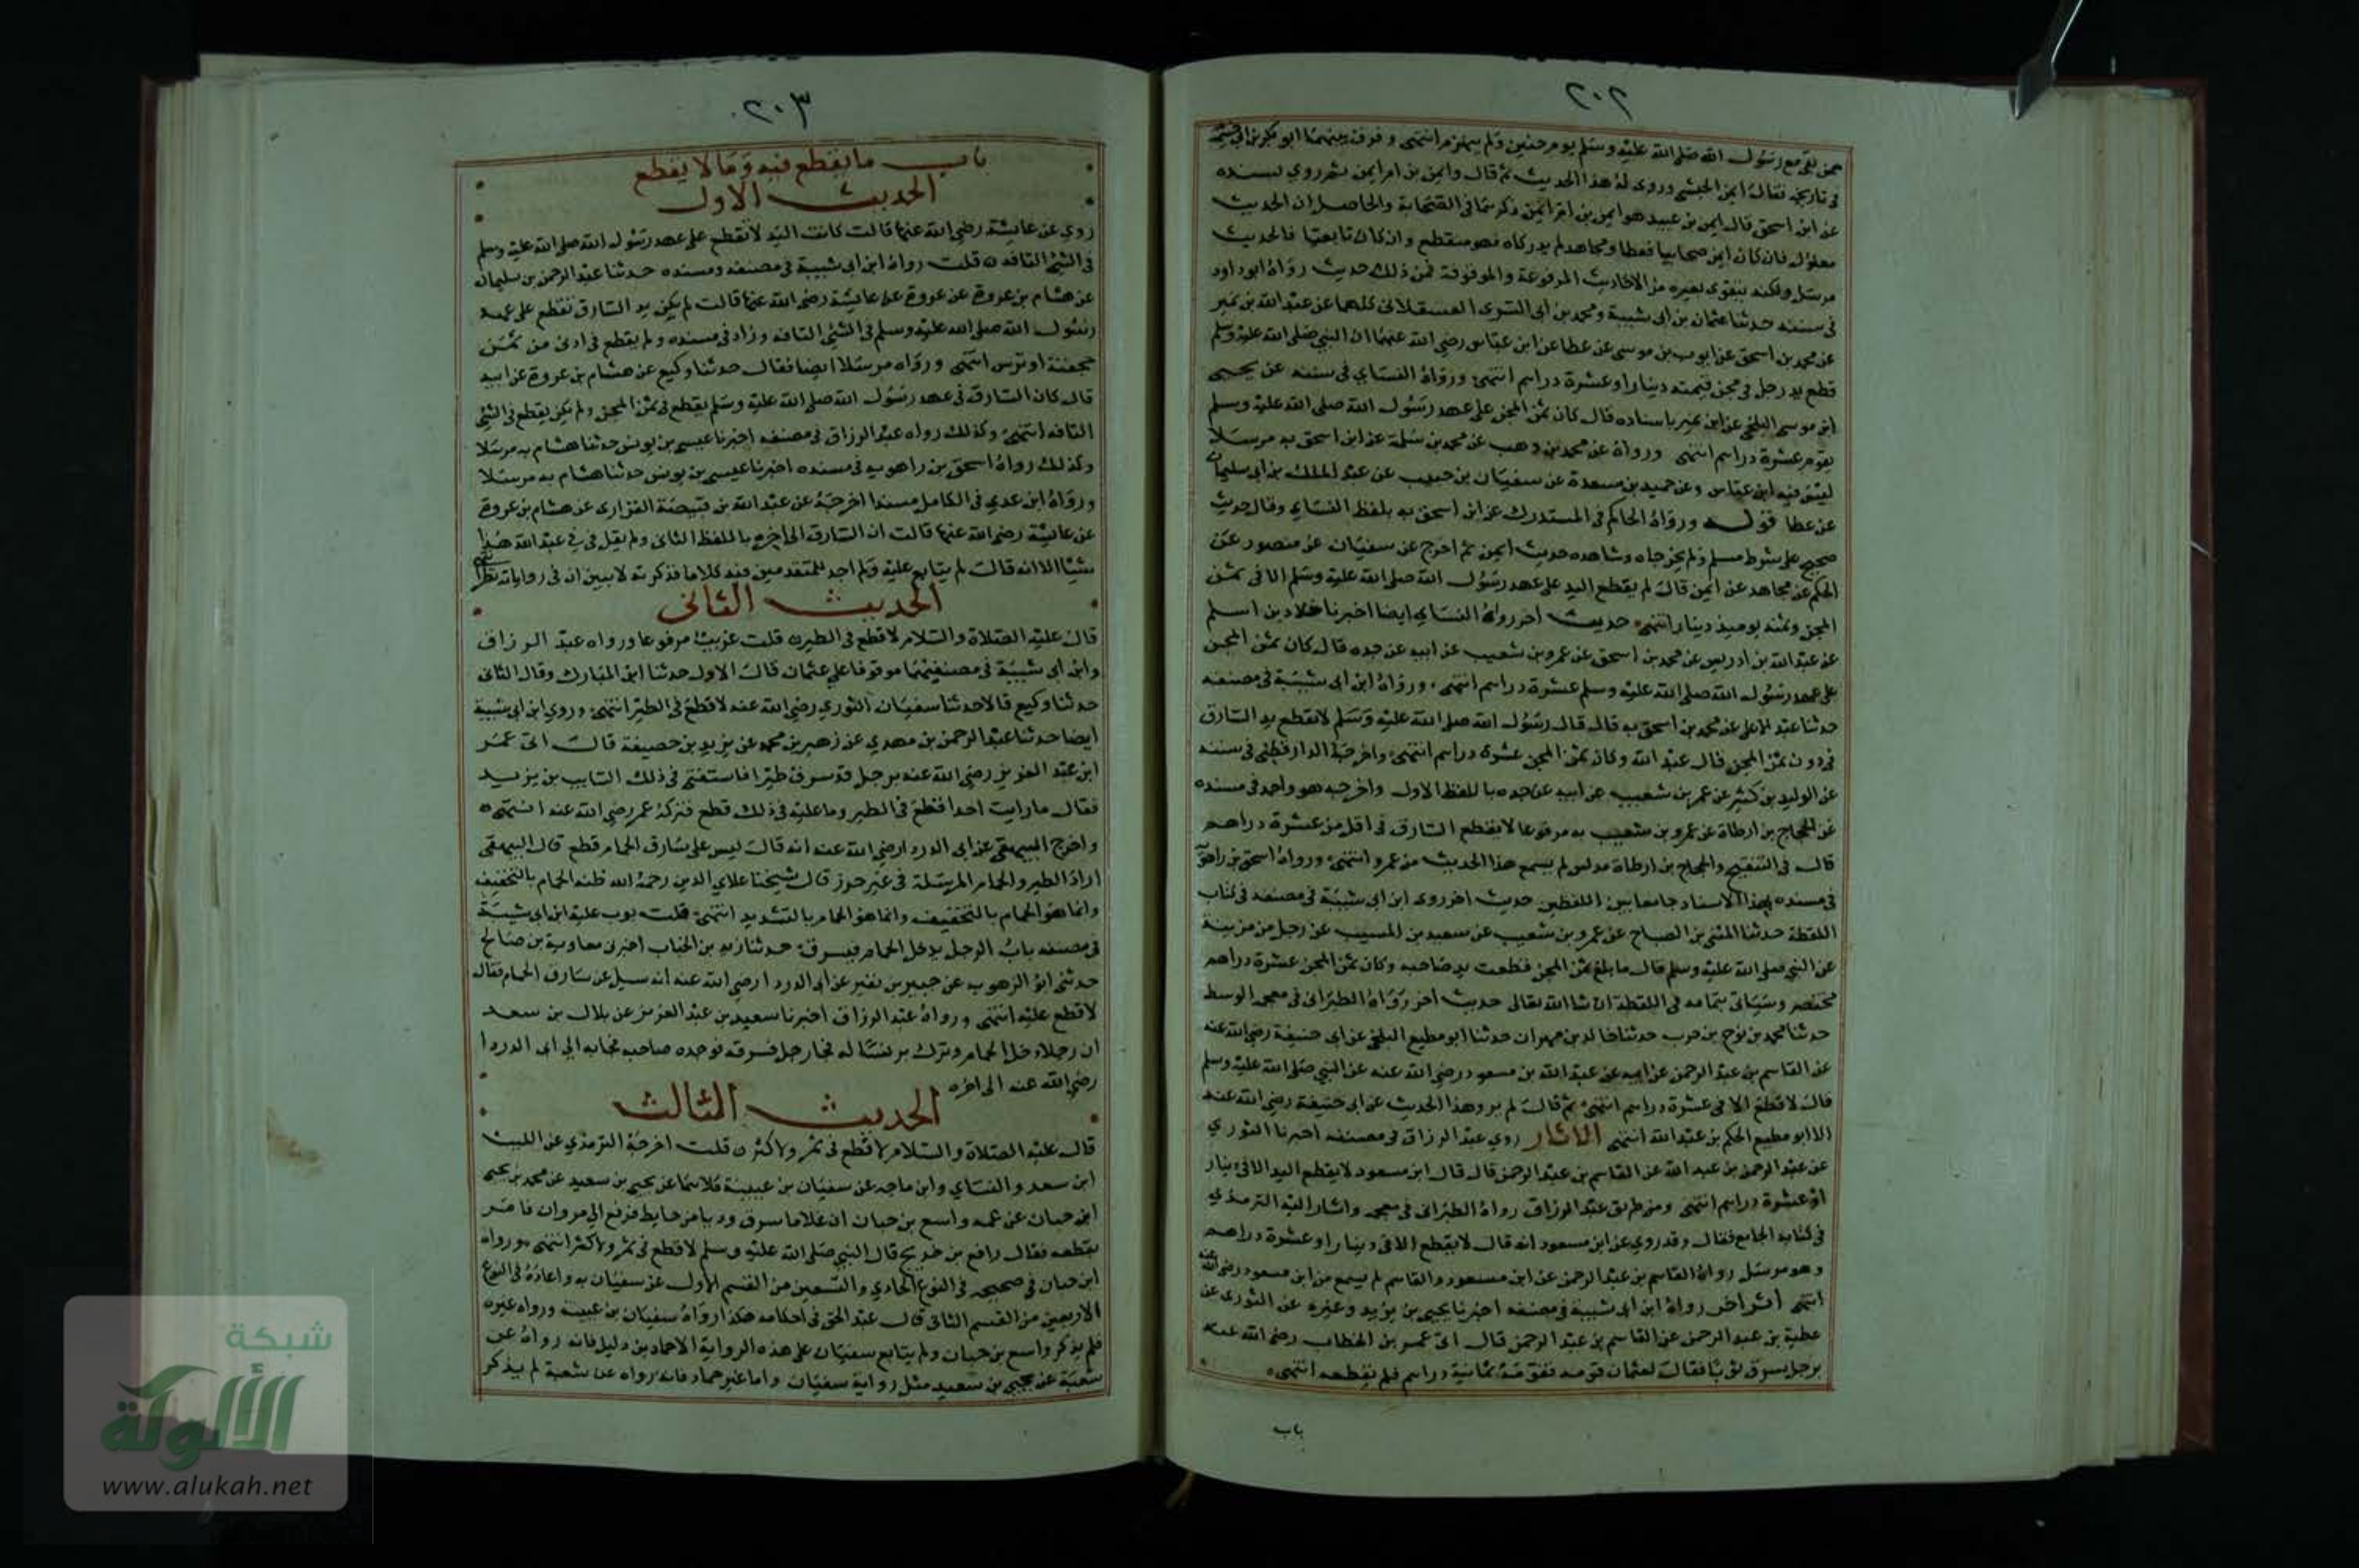 ٢٠٢
ممن بقي مع رسول الله صلى الله عليه وسلم يوم حنين ولم ينهزم انتهى وفرق بينهما ابو بكر بن ابي خيثمة
في تاريخه فقال ايمن الحبشي وروى له هذا الحديث ثم قال وايمن بن ام ايمن ثم روي بسنده
عن ابن اسحق قال ايمن بن عبيد هو ايمن بن ام ايمن ذكرتها في الصحابة والحاصل ان الحديث
معلول فان كان ايمن صحابيا فعطا ومجاهد لم يدركاه فهو منقطع وان كان تابعيا فالحديث
مرسل ولكنه يتقوى بغيره من الاحاديث المرفوعة والموقوفة فمن ذلك حديث رواه ابو داود
في سننه حدثنا عثمان بن ابي شيبة ومحمد بن ابي السري العسقلاني كلهما عن عبد الله بن نمير
عن محمد بن اسحق عن ايوب بن موسى عن عطا عن ابن عباس رضي الله عنهما ان النبي صلى الله عليه وسلم
قطع يد رجل في مجن قيمته دينار او عشرة دراهم انتهى ورواه النساي في سننه عن يحيى
ابن موسى البلخي عن ابن نمير باسناده قال كان ثمن المجن على عهد رسول الله صلى الله عليه وسلم
يقوم عشرة دراهم انتهى ورواه عن محمد بن وهب عن محمد بن سلمة عن ابن اسحق به مرسلا
ليس فيه ابن عباس وعن حميد بن مسعدة عن سفيان بن حبيب عن عبد الملك بن ابي سليمان
عن عطا قوله ورواه الحاكم في المستدرك عن ابن اسحق به بلفظ النساي وقال حديث
صحيح على شرط مسلم ولم يخرجاه وشاهده حديث ايمن ثم اخرج عن سفيان عن منصور عن
الحكم عن مجاهد عن ايمن قال لم يقطع اليد على عهد رسول الله صلى الله عليه وسلم الا في ثمن
المجن وثمنه يوميذ دينار انتهى حديث اخر رواه النساي ايضا اخبرنا خلاد بن اسلم
عن عبد الله بن ادريس عن محمد بن اسحق عن عمرو بن شعيب عن ابيه عن جده قال كان ثمن المجن
على عهد رسول الله صلى الله عليه وسلم عشرة دراهم انتهى ورواه ابن ابي شيبة في مصنفه
حدثنا عبد الاعلى عن محمد بن اسحق به قال قال رسول الله صلى الله عليه وسلم لا تقطع يد السارق
في دون ثمن المجن قال عبد الله وكان ثمن المجن عشرة دراهم انتهى واخرجه الدارقطني في سننه
عن الوليد بن كثير عن عمر بن شعيب عن ابيه عن جده باللفظ الاول واخرجه هو واحمد في مسنده
عن الحجاج بن ارطاة عن عمرو بن شعيب به مرفوعا لا يقطع السارق في اقل من عشرة دراهم
قال في التنقيح والحجاج بن ارطاة مدلس لم يسمع هذا الحديث من عمرو انتهى ورواه اسحق بن راهويه
في مسنده بهذا الاسناد جامعا بين اللفظين حديث اخر روى ابن ابي شيبة في مصنفه في كتاب
اللقطة حدثنا المثنى بن الصباح عن عمرو بن شعيب عن سعيد بن المسيب عن رجل من مزينة
عن النبي صلى الله عليه وسلم قال ما بلغ ثمن المجن قطعت يد صاحبه وكان ثمن المجن عشرة دراهم
مختصر وسياتي بتمامه في اللقطة ان شا الله تعالى حديث اخر رواه الطبراني في معجمه الوسط
حدثنا محمد بن نوح بن حرب حدثنا خالد بن مهران حدثنا ابو مطيع البلخي عن ابي حنيفة رضي الله عنه
عن القاسم بن عبد الرحمن عن ابيه عن عبد الله بن مسعود رضي الله عنه عن النبي صلى الله عليه وسلم
قال لا قطع الا في عشرة دراهم انتهى ثم قال لم يرو هذا الحديث عن ابي حنيفة رضي الله عنه
الا ابو مطيع الحكم بن عبد الله انتهى الاثار روي عبد الرزاق في مصنفه اخبرنا الثوري
عن عبد الرحمن بن عبد الله عن القاسم بن عبد الرحمن قال قال ابن مسعود لا يقطع اليد الا في دينار
او عشرة دراهم انتهى ومن طريق عبد الرزاق رواه الطبراني في معجمه واشار اليه الترمذي
في كتابه الجامع فقال وقد روي عن ابن مسعود انه قال لا يقطع الا في دينار او عشرة دراهم
وهو مرسل رواه القاسم بن عبد الرحمن عن ابن مسعود والقاسم لم يسمع من ابن مسعود رضي الله عنه
انتهى اثر اخر رواه ابن ابي شيبة في مصنفه اخبرنا يحيى بن يزيد وغيره عن الثوري عن
عطية بن عبد الرحمن عن القاسم بن عبد الرحمن قال اتى عمر بن الخطاب رضي الله عنه
برجل يسرق ثوبا فقال لعثمان قومه فقومه ثمانية دراهم فلم يقطعه انتهى
باب
٢٠٣
باب ما يقطع فيه وما لا يقطع
الحديث الاول
روي عن عايشة رضي الله عنها قالت كانت اليد لا تقطع على عهد رسول الله صلى الله عليه وسلم
في الشي التافه قلت رواه ابن ابي شيبة في مصنفه ومسنده حدثنا عبد الرحمن بن سليمان
عن هشام بن عروة عن عروة عن عايشة رضي الله عنها قالت لم يكن يد السارق تقطع على عهد
رسول الله صلى الله عليه وسلم في الشي التافه وزاد في مسنده ولم يقطع في ادنى من ثمن
حجفة او ترس انتهى ورواه مرسلا ايضا فقال حدثنا وكيع عن هشام بن عروة عن ابيه
قال كان السارق في عهد رسول الله صلى الله عليه وسلم يقطع في ثمن المجن ولم يكن يقطع في الشي
التافه انتهى وكذلك رواه عبد الرزاق في مصنفه اخبرنا عيسى بن يونس حدثنا هشام به مرسلا
وكذلك رواه اسحق بن راهويه في مسنده اخبرنا عيسى بن يونس حدثنا هشام به مرسلا
ورواه ابن عدي في الكامل مسندا اخرجه عن عبد الله بن قبيصة الفزاري عن هشام بن عروة
عن عايشة رضي الله عنها قالت ان السارق الى اخره باللفظ الثاني ولم يقل في عبد الله هذا
شيئا الا انه قالت لم يتابع عليه ولم اجد للمتقدمين فيه كلاما فذكرته لابين ان في رواياته نظرا انتهى
الحديث الثاني
قال عليه الصلاة والسلام لا قطع في الطير قلت غريب مرفوعا ورواه عبد الرزاق
وابن ابي شيبة في مصنفيهما موقوفا على عثمان قال الاول حدثنا ابن المبارك وقال الثاني
حدثنا وكيع قالا حدثنا سفيان الثوري رضي الله عنه لا قطع في الطير انتهى وروي ابن ابي شيبة
ايضا حدثنا عبد الرحمن بن مهدي عن زهير بن محمد عن يزيد بن خصيفة قال اتى عمر
ابن عبد العزيز رضي الله عنه برجل قد سرق طيرا فاستفتى في ذلك السايب بن يزيد
فقال ما رايت احدا قطع في الطير وما عليه في ذلك قطع فتركه عمر رضي الله عنه انتهى
واخرج البيهقي عن ابي الدردا رضي الله عنه انه قال ليس على سارق الحمام قطع قال البيهقي
اراد الطير والحمام المرسلة في غير حرز قال شيخنا علاي الدين رحمه الله ظنه الحمام بالتخفيف
وانما هو الحمام بالتخفيف وانما هو الحمام بالتشديد انتهى قلت بوب عليه ابن ابي شيبة
في مصنفه باب الرجل يدخل الحمام فيسرق حدثنا زيد بن الحباب اخبرني معاوية بن صالح
حدثني ابو الزهوب عن جبير بن نفير عن ابي الدردا رضي الله عنه انه سيل عن سارق الحمام فقال
لا قطع عليه انتهى ورواه عبد الرزاق اخبرنا سعيد بن عبد العزيز عن بلال بن سعد
ان رجلا دخل الحمام وترك برنسا له فجا رجل فسرقه فوجده صاحبه فجا به الى ابي الدردا
رضي الله عنه الى اخره
الحديث الثالث
قال عليه الصلاة والسلام لا قطع في ثمر ولا كثر قلت اخرجه الترمذي عن الليث
ابن سعد والنساي وابن ماجه عن سفيان بن عيينة كلاهما عن يحيى بن سعيد عن محمد بن يحيى
ابن حبان عن عمه واسع بن حبان ان غلاما سرق وديا من حايط فرفع الى مروان فامر
بقطعه فقال رافع بن خديج قال النبي صلى الله عليه وسلم لا قطع في ثمر ولا كثر انتهى ورواه
ابن حبان في صحيحه في النوع الحادي والتسعين من القسم الاول عن سفيان به واعاده في النوع
الاربعين من القسم الثاني قال عبد الحق في احكامه هكذا رواه سفيان بن عيينة ورواه غيره
فلم يذكر واسع بن حبان ولم يتابع سفيان على هذه الرواية الا حماد بن دليل فانه رواه عن
شعبة عن يحيى بن سعيد مثل رواية سفيان واما غير حماد فانه رواه عن شعبة لم يذكر
شبكة
الألوكة
www.alukah.net